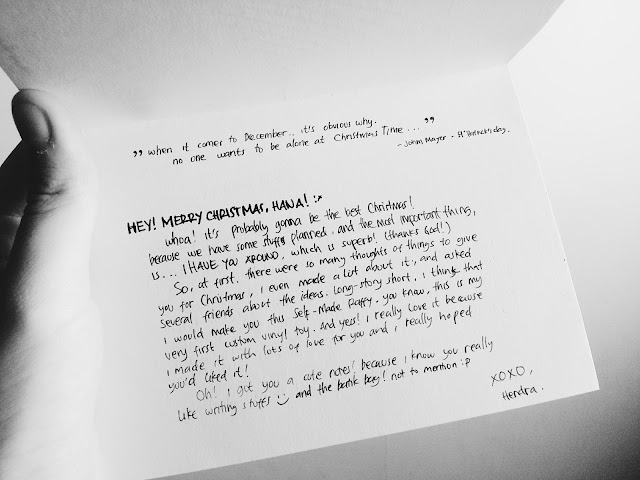 " when it comes to December.. it's obvious why.
no one wants to be alone at Christmas Time... "
- John Mayer - St Patrick's day.
HEY! MERRY CHRISTMAS, HANA! :*
whoa! it's probably gonna be the best Christmas!
because we have some stuffs planned. and the most important thing,
is... I HAVE YOU AROUND, which is superb! (thanks God!)
So, at first, there were so many thoughts of things to give
you for Christmas, i even made a list about it, and asked
several friends about the ideas. Long-story short, i think that
I would make you this Self-Made Raffy. you know, this is my
very first custom vinyl toy. And yess! i really love it because
i made it with lots of love for you and i really hoped
you'd liked it!
Oh! i got you a cute notes! because i know you really
like writing stuffs :) and the batik bag! not to mention :p
XOXO,
Hendra.